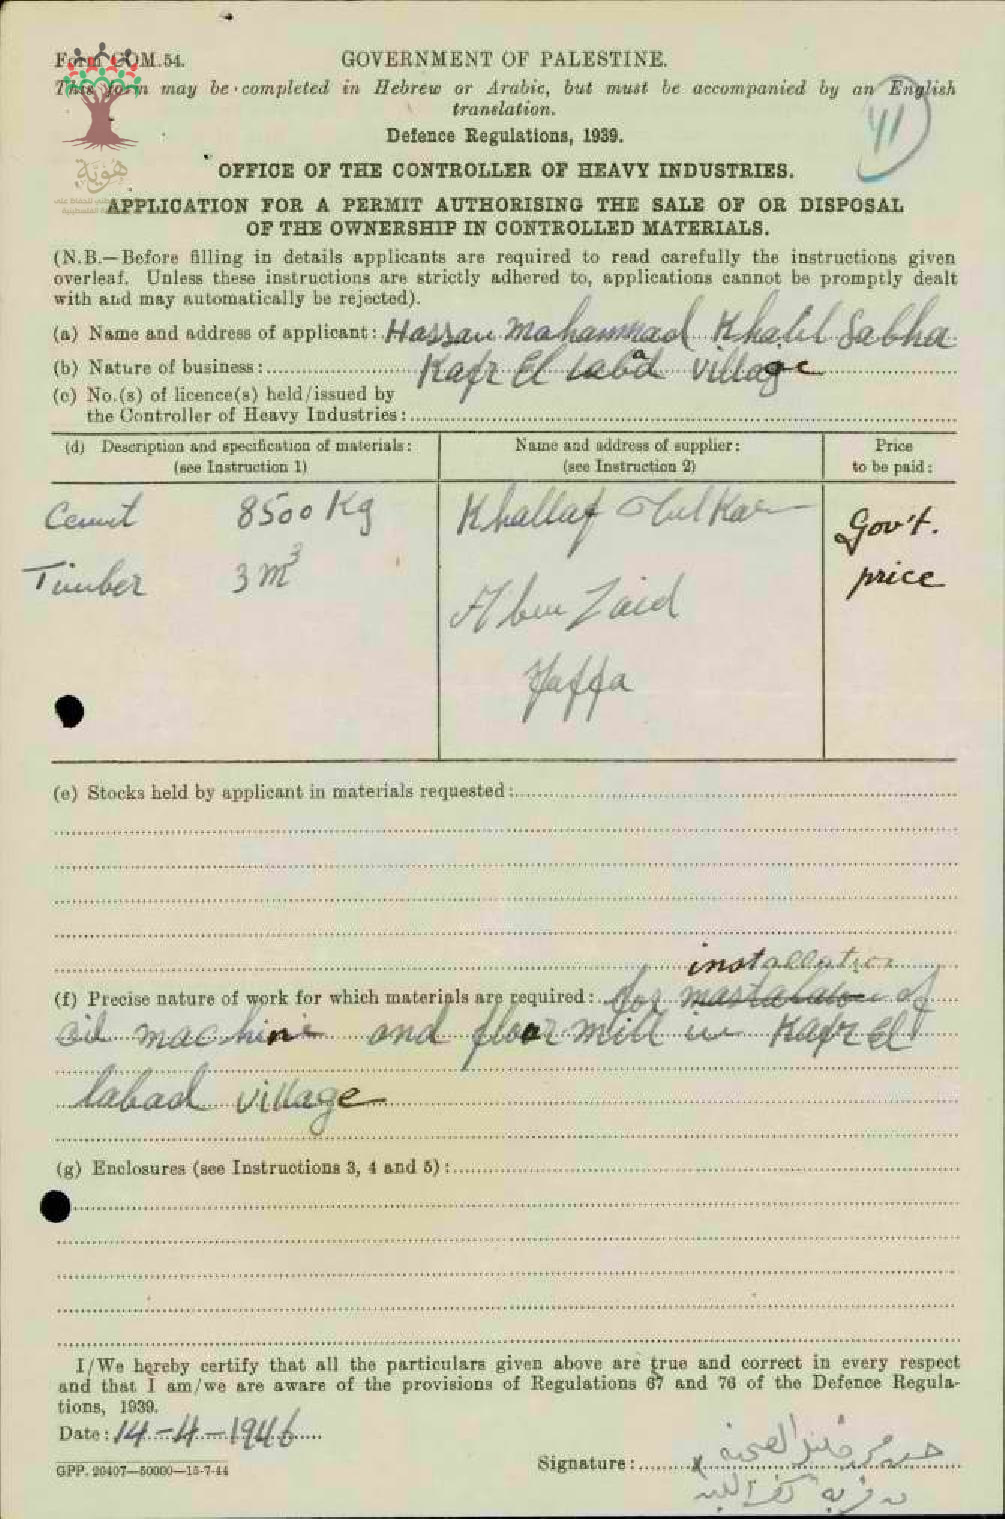 Form COM.54.
GOVERNMENT OF PALESTINE.
This form may be completed in Hebrew or Arabic, but must be accompanied by an English
translation.
41
Defence Regulations, 1939.
هوية
OFFICE OF THE CONTROLLER OF HEAVY INDUSTRIES.
APPLICATION FOR A PERMIT AUTHORISING THE SALE OF OR DISPOSAL
OF THE OWNERSHIP IN CONTROLLED MATERIALS.
(N.B.—Before filling in details applicants are required to read carefully the instructions given
overleaf. Unless these instructions are strictly adhered to, applications cannot be promptly dealt
with and may automatically be rejected).
(a) Name and address of applicant: Hassan Mohammad Khalil Sabha
(b) Nature of business: Kafr El Labad village
(c) No.(s) of licence(s) held/issued by
the Controller of Heavy Industries:
(d) Description and specification of materials: Name and address of supplier: Price
(see Instruction 1) (see Instruction 2) to be paid:
Cemt 8500 Kg Khallaf Tulkar Gov't.
Timber 3 m³ Abu Zaid price
Yaffa
(e) Stocks held by applicant in materials requested:
installation
(f) Precise nature of work for which materials are required: for of
oil machine and floor mill in Kafr El
labad village
(g) Enclosures (see Instructions 3, 4 and 5):
I/We hereby certify that all the particulars given above are true and correct in every respect
and that I am/we are aware of the provisions of Regulations 67 and 76 of the Defence Regula-
tions, 1939.
Date: 14-4-1946
GPP. 20407—50000—15-7-44
Signature: x
من قرية كفر اللبد